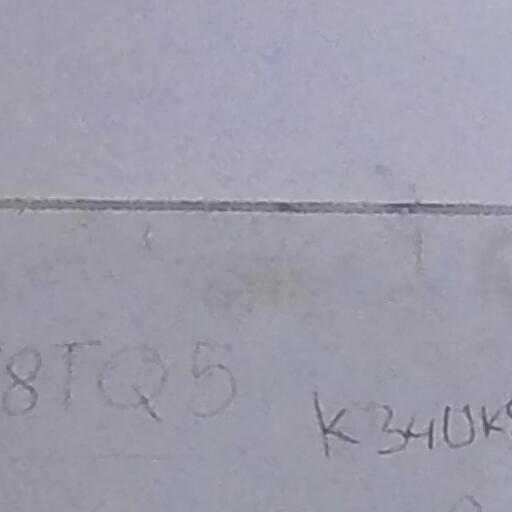 8TQ5
K34UK